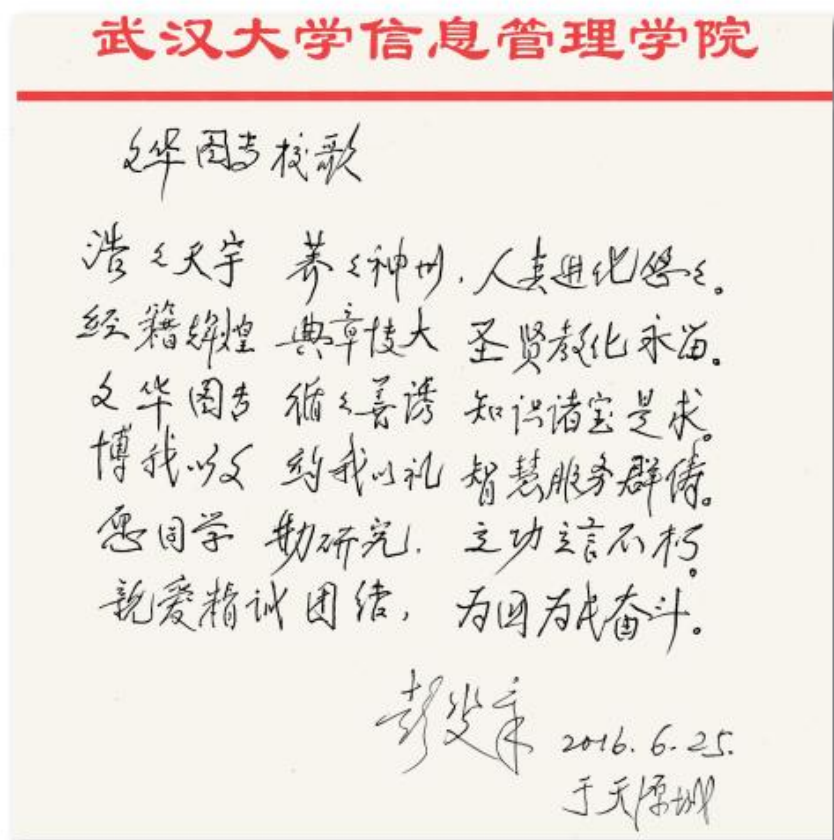 武汉大学信息管理学院
文华图专校歌
浩々天宇 莽々神州，人类进化悠々。
经籍辉煌 典章博大 圣贤教化永留。
文华图专 循々善诱 知识诸宝是求。
博我以文 约我以礼 智慧服务群俦。
愿同学 勤研究， 立功立言不朽。
亲爱精诚团结， 为国为民奋斗。
彭斐章 2016.6.25.
于天源城